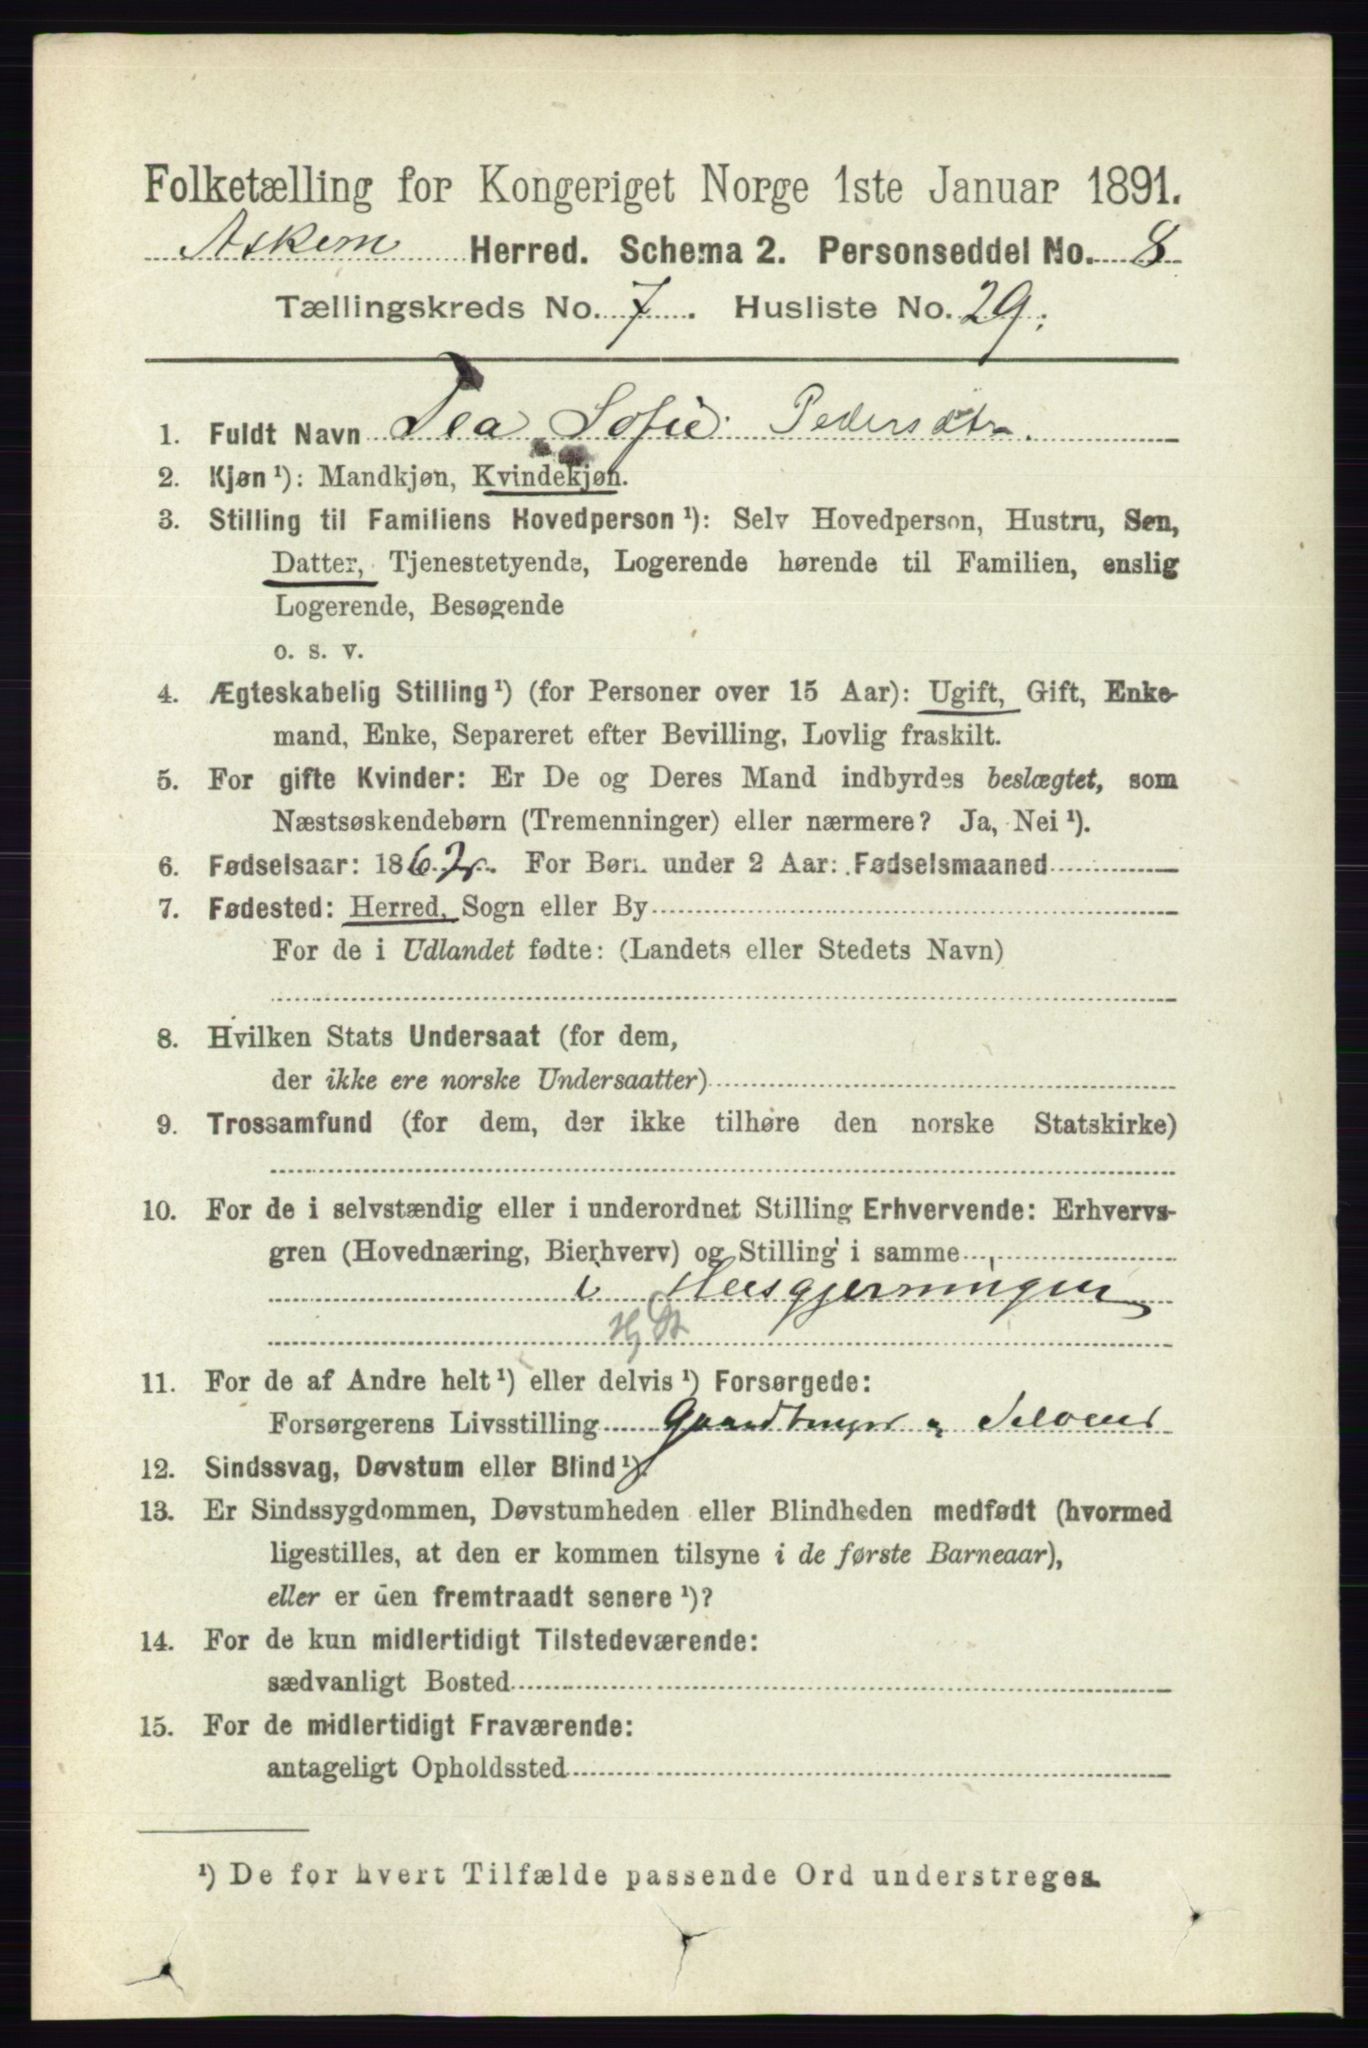 Folketælling for Kongeriget Norge 1ste Januar 1891.
Askem Herred. Schema 2. Personseddel No. 8
Tællingskreds No. 7. Husliste No. 29.
1. Fuldt Navn Pea Sofie Pedersdtr.
2. Kjøn¹): Mandkjøn, Kvindekjøn.
3. Stilling til Familiens Hovedperson¹): Selv Hovedperson, Hustru, Søn,
Datter, Tjenestetyende, Logerende hørende til Familien, enslig
Logerende, Besøgende
o. s. v.
4. Ægteskabelig Stilling¹) (for Personer over 15 Aar): Ugift, Gift, Enke-
mand, Enke, Separeret efter Bevilling, Lovlig fraskilt.
5. For gifte Kvinder: Er De og Deres Mand indbyrdes beslægtet, som
Næstsøskendebørn (Tremenninger) eller nærmere? Ja, Nei¹).
6. Fødselsaar: 1862. For Børn under 2 Aar: Fødselsmaaned
7. Fødested: Herred, Sogn eller By
For de i Udlandet fødte: (Landets eller Stedets Navn)
8. Hvilken Stats Undersaat (for dem,
der ikke ere norske Undersaatter)
9. Trossamfund (for dem, der ikke tilhøre den norske Statskirke)
10. For de i selvstændig eller i underordnet Stilling Erhvervende: Erhvervs-
gren (Hovednæring, Bierhverv) og Stilling i samme
i Husgjerningen
11. For de af Andre helt¹) eller delvis¹) Forsørgede:
Forsørgerens Livsstilling Gaardbruger og Seloeier
12. Sindssvag, Døvstum eller Blind¹).
13. Er Sindssygdommen, Døvstumheden eller Blindheden medfødt (hvormed
ligestilles, at den er kommen tilsyne i de første Barneaar),
eller er den fremtraadt senere¹)?
14. For de kun midlertidigt Tilstedeværende:
sædvanligt Bosted
15. For de midlertidigt Fraværende:
antageligt Opholdssted
¹) De for hvert Tilfælde passende Ord understreges.